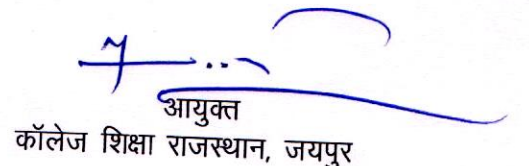 आयुक्त
कॉलेज शिक्षा राजस्थान, जयपुर